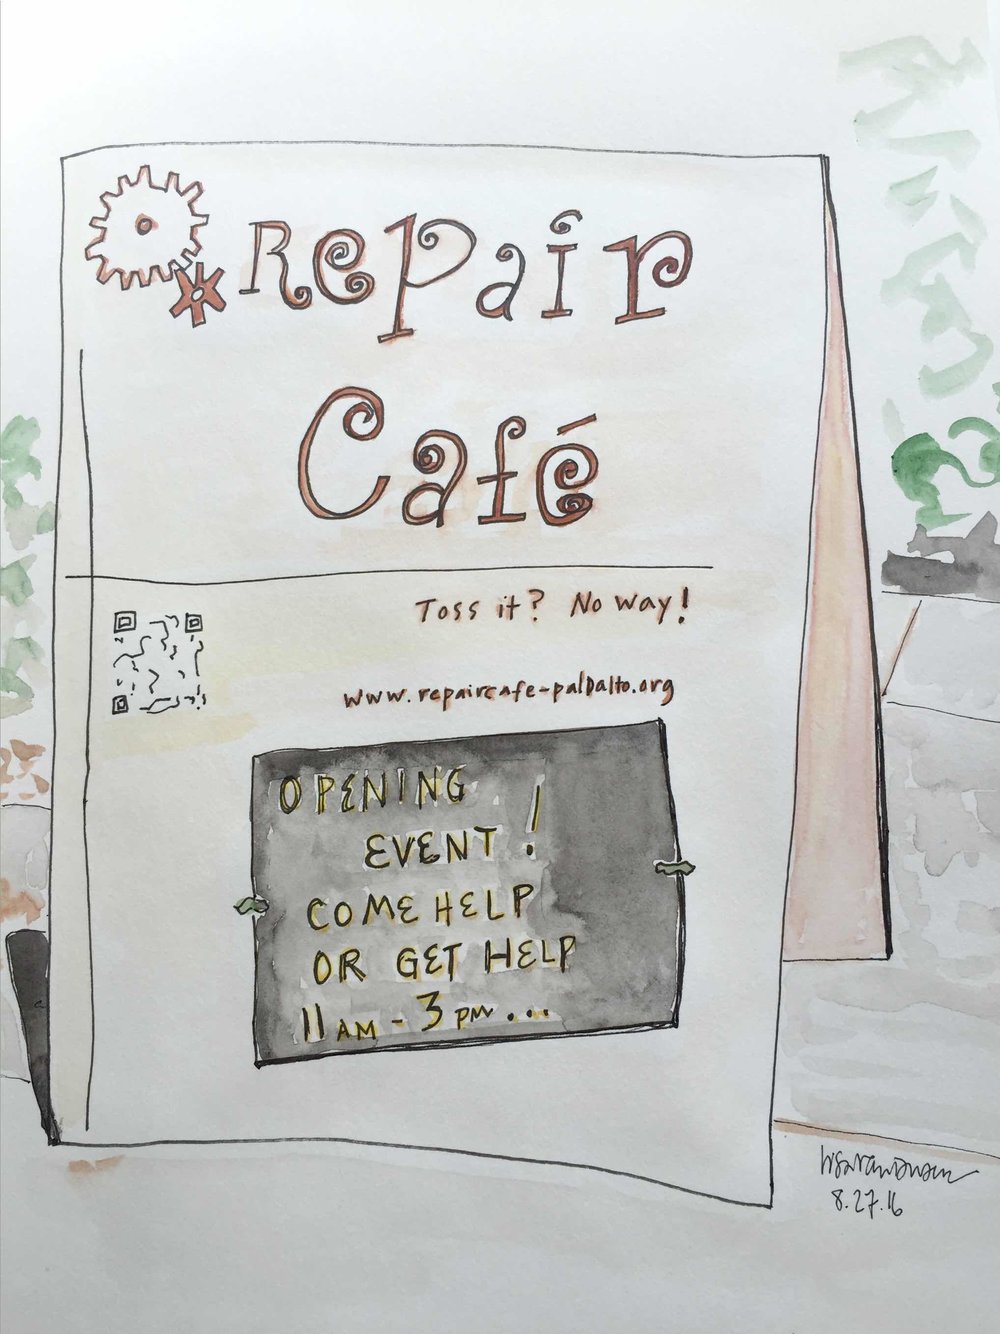 Repair
Café
Toss it? No way!
www.repaircafe-paloalto.org
OPENING
EVENT!
COME HELP
OR GET HELP
11 AM - 3 PM...
8.27.16